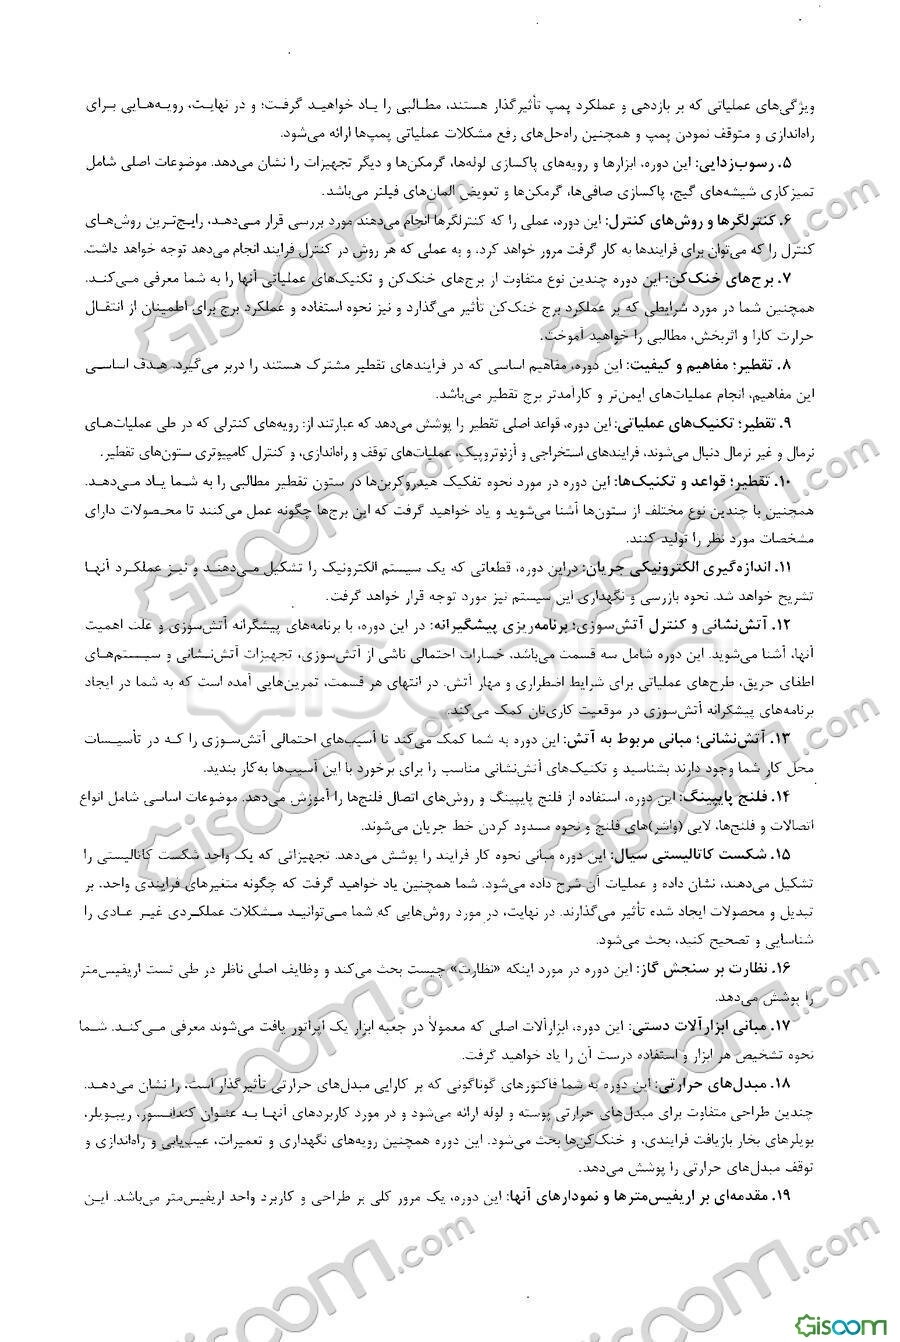 ویژگی‌های عملیاتی که بر بازدهی و عملکرد پمپ تأثیرگذار هستند، مطالبی را یاد خواهید گرفت؛ و در نهایت، رویه‌هایی برای
راه‌اندازی و متوقف نمودن پمپ و همچنین راه‌حل‌های رفع مشکلات عملیاتی پمپ‌ها ارائه می‌شود.
۵. رسوب‌زدایی: این دوره، ابزارها و رویه‌های پاکسازی لوله‌ها، گرمکن‌ها و دیگر تجهیزات را نشان می‌دهد. موضوعات اصلی شامل
تمیزکاری شیشه‌های گیج، پاکسازی صافی‌ها، گرمکن‌ها و تعویض المان‌های فیلتر می‌باشد.
۶. کنترلگرها و روش‌های کنترل: این دوره، عملی را که کنترلگرها انجام می‌دهند مورد بررسی قرار می‌دهد، رایج‌ترین روش‌های
کنترل را که می‌توان برای فرایندها به کار گرفت مرور خواهد کرد، و به عملی که هر روش در کنترل فرایند انجام می‌دهد توجه خواهد داشت.
۷. برج‌های خنک‌کن: این دوره چندین نوع متفاوت از برج‌های خنک‌کن و تکنیک‌های عملیاتی آنها را به شما معرفی می‌کند.
همچنین شما در مورد شرایطی که بر عملکرد برج خنک‌کن تأثیر می‌گذارد و نیز نحوه استفاده و عملکرد برج برای اطمینان از انتقال
حرارت کارا و اثربخش، مطالبی را خواهید آموخت.
۸. تقطیر؛ مفاهیم و کیفیت: این دوره، مفاهیم اساسی که در فرایندهای تقطیر مشترک هستند را دربر می‌گیرد. هدف اساسی
این مفاهیم، انجام عملیات‌های ایمن‌تر و کارآمدتر برج تقطیر می‌باشد.
۹. تقطیر؛ تکنیک‌های عملیاتی: این دوره، قواعد اصلی تقطیر را پوشش می‌دهد که عبارتند از: رویه‌های کنترلی که در طی عملیات‌های
نرمال و غیر نرمال دنبال می‌شوند، فرایندهای استخراجی و آزئوتروپیک، عملیات‌های توقف و راه‌اندازی، و کنترل کامپیوتری ستون‌های تقطیر.
۱۰. تقطیر؛ قواعد و تکنیک‌ها: این دوره در مورد نحوه تفکیک هیدروکربن‌ها در ستون تقطیر مطالبی را به شما یاد می‌دهد.
همچنین با چندین نوع مختلف از ستون‌ها آشنا می‌شوید و یاد خواهید گرفت که این برج‌ها چگونه عمل می‌کنند تا محصولات دارای
مشخصات مورد نظر را تولید کنند.
۱۱. اندازه‌گیری الکترونیکی جریان: دراین دوره، قطعاتی که یک سیستم الکترونیک را تشکیل می‌دهند و نیز عملکرد آنها
تشریح خواهد شد. نحوه بازرسی و نگهداری این سیستم نیز مورد توجه قرار خواهد گرفت.
۱۲. آتش‌نشانی و کنترل آتش‌سوزی؛ برنامه‌ریزی پیشگیرانه: در این دوره، با برنامه‌های پیشگرانه آتش‌سوزی و علت اهمیت
آنها، آشنا می‌شوید. این دوره شامل سه قسمت می‌باشد، خسارات احتمالی ناشی از آتش‌سوزی، تجهیزات آتش‌نشانی و سیستم‌های
اطفای حریق، طرح‌های عملیاتی برای شرایط اضطراری و مهار آتش. در انتهای هر قسمت، تمرین‌هایی آمده است که به شما در ایجاد
برنامه‌های پیشگرانه آتش‌سوزی در موقعیت کاری‌تان کمک می‌کند.
۱۳. آتش‌نشانی؛ مبانی مربوط به آتش: این دوره به شما کمک می‌کند تا آسیب‌های احتمالی آتش‌سوزی را که در تأسیسات
محل کار شما وجود دارند بشناسید و تکنیک‌های آتش‌نشانی مناسب را برای برخورد با این آسیب‌ها به‌کار بندید.
۱۴. فلنج پایپینگ: این دوره، استفاده از فلنج پایپینگ و روش‌های اتصال فلنج‌ها را آموزش می‌دهد. موضوعات اساسی شامل انواع
اتصالات و فلنج‌ها، لایی (واشر)های فلنج و نحوه مسدود کردن خط جریان می‌شوند.
۱۵. شکست کاتالیستی سیال: این دوره مبانی نحوه کار فرایند را پوشش می‌دهد. تجهیزاتی که یک واحد شکست کاتالیستی را
تشکیل می‌دهند، نشان داده و عملیات آن شرح داده می‌شود. شما همچنین یاد خواهید گرفت که چگونه متغیرهای فرایندی واحد، بر
تبدیل و محصولات ایجاد شده تأثیر می‌گذارند. در نهایت، در مورد روش‌هایی که شما می‌توانید مشکلات عملکردی غیر عادی را
شناسایی و تصحیح کنید، بحث می‌شود.
۱۶. نظارت بر سنجش گاز: این دوره در مورد اینکه «نظارت» چیست بحث می‌کند و وظایف اصلی ناظر در طی تست اریفیس‌متر
را پوشش می‌دهد.
۱۷. مبانی ابزارآلات دستی: این دوره، ابزارآلات اصلی که معمولاً در جعبه ابزار یک اپراتور یافت می‌شوند معرفی می‌کند. شما
نحوه تشخیص هر ابزار و استفاده درست آن را یاد خواهید گرفت.
۱۸. مبدل‌های حرارتی: این دوره به شما فاکتورهای گوناگونی که بر کارایی مبدل‌های حرارتی تأثیرگذار است، را نشان می‌دهد.
چندین طراحی متفاوت برای مبدل‌های حرارتی پوسته و لوله ارائه می‌شود و در مورد کاربردهای آنها به عنوان کندانسور، ریبویلر،
بویلرهای بخار بازیافت فرایندی، و خنک‌کن‌ها بحث می‌شود. این دوره همچنین رویه‌های نگهداری و تعمیرات، عیب‌یابی و راه‌اندازی و
توقف مبدل‌های حرارتی را پوشش می‌دهد.
۱۹. مقدمه‌ای بر اریفیس‌مترها و نمودارهای آنها: این دوره، یک مرور کلی بر طراحی و کاربرد واحد اریفیس‌متر می‌باشد. این
Gisoom